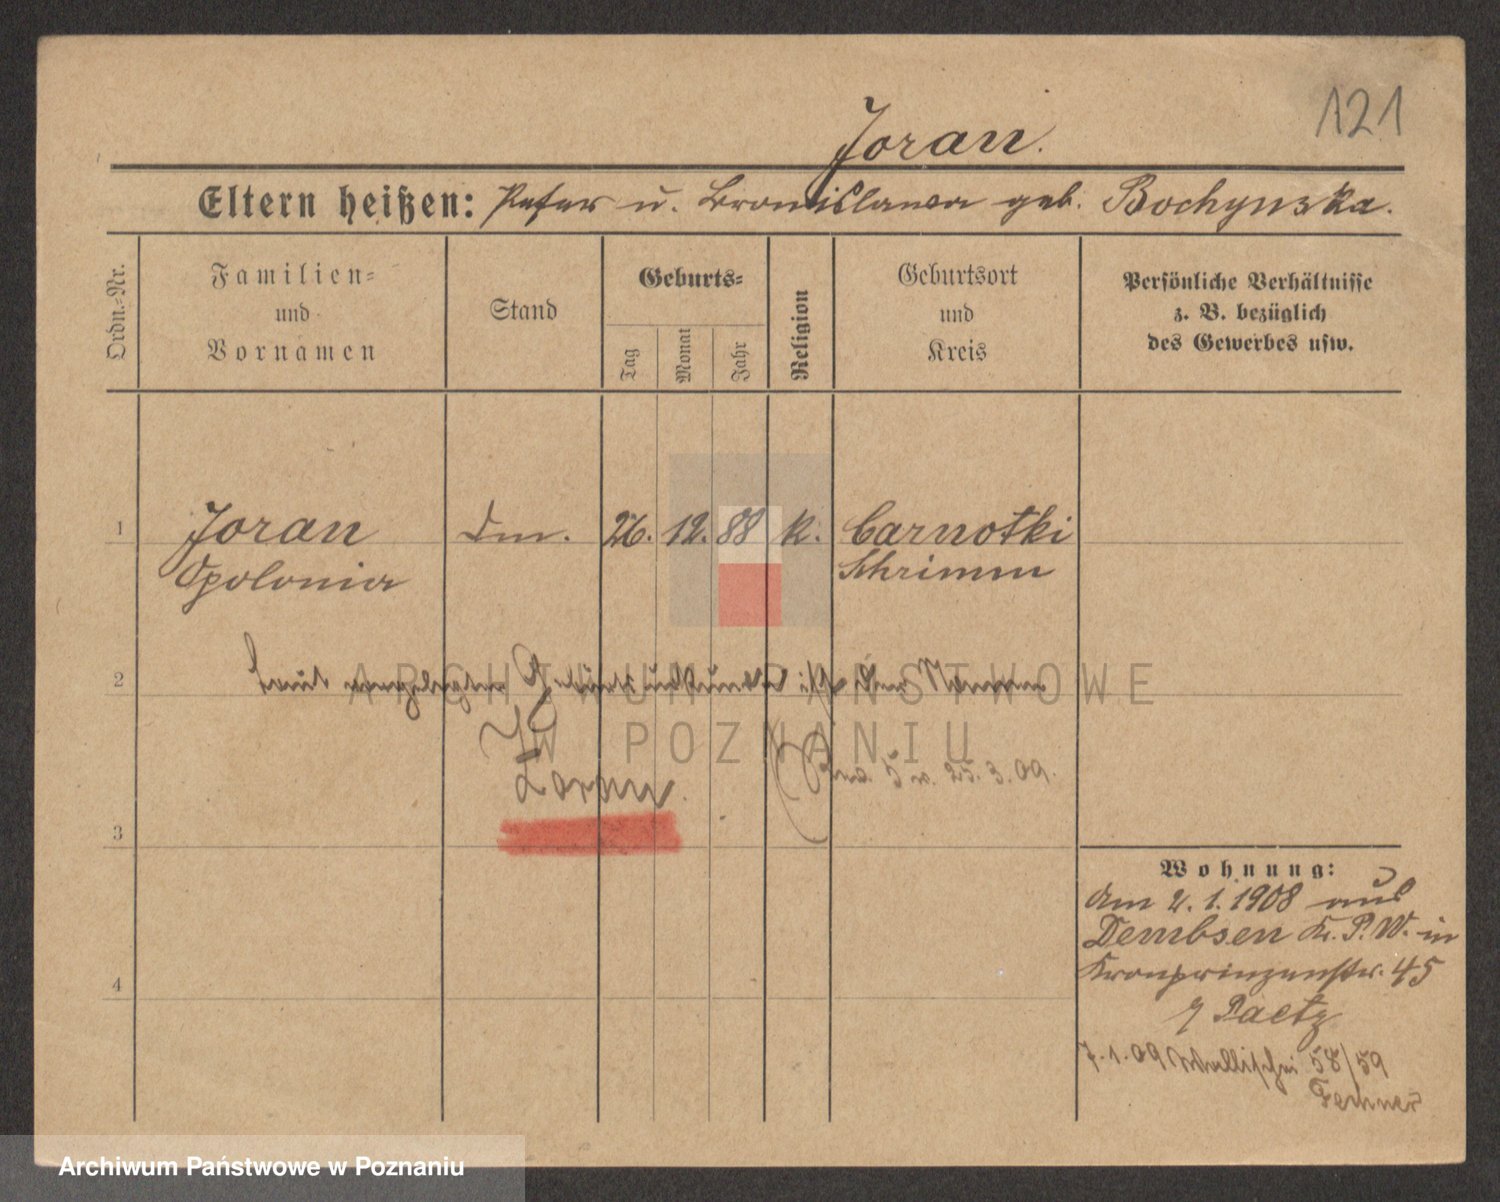 121
Joran.
Eltern heißen: Peter u. Bronislawa geb. Bochynska.
Ordn.=Nr.
Familien=
und
Vornamen
Stand
Geburts=
Tag
Monat
Jahr
Religion
Geburtsort
und
Kreis
Persönliche Verhältnisse
z. B. bezüglich
des Gewerbes usw.
1
Joran
Apolonia
26. 12. 88
k.
Czarnotki
Schrimm
2
Laut vorgelegter Geburtsurkunde ist der Namen
Zoran.
25.3.09.
3
4
Wohnung:
Am 2.1.1908 aus
Dembsen Kr. P. W. in
Kronprinzenstr. 45
Paetz
7.1.09 Wallischei 58/59
ARCHIWUM PAŃSTWOWE
W POZNANIU
Archiwum Państwowe w Poznaniu